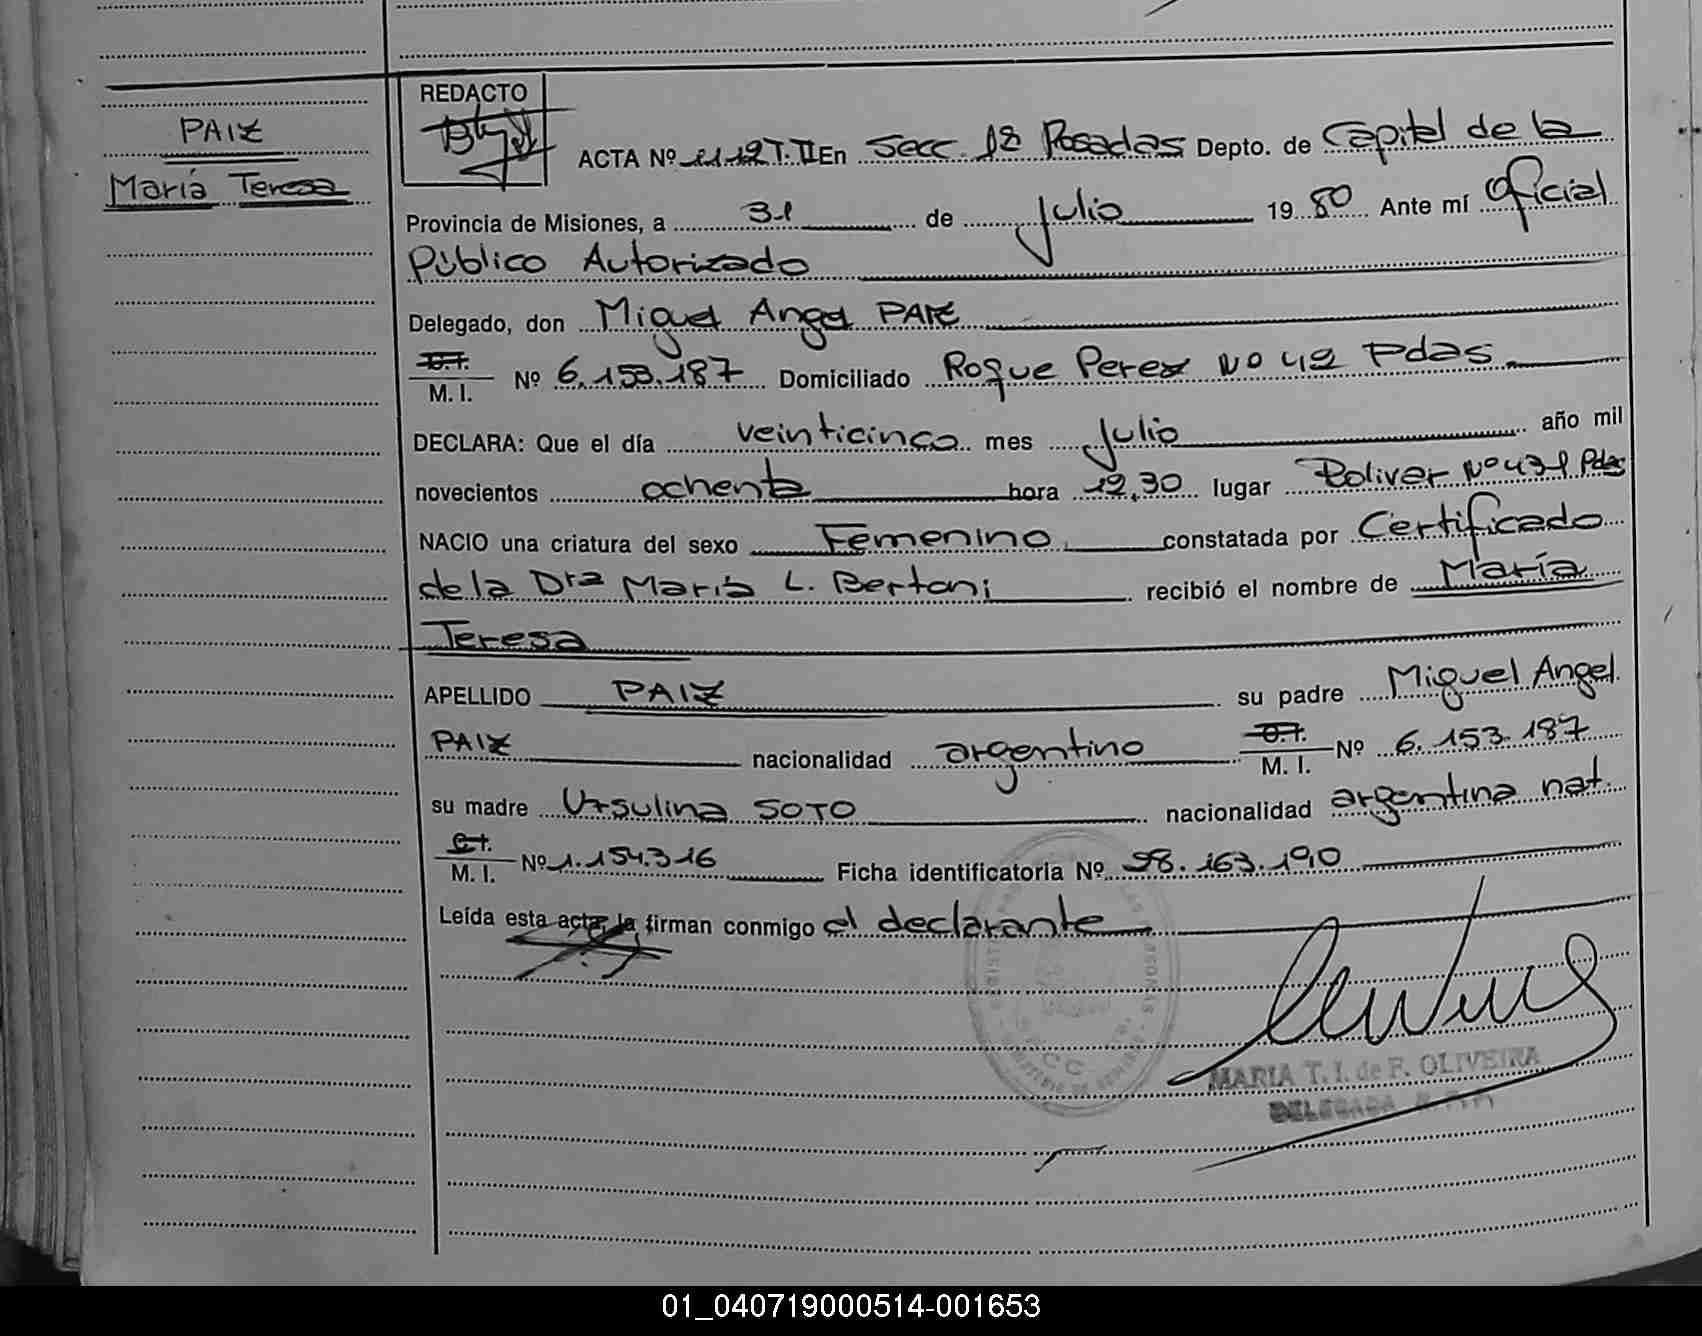 REDACTO
PAIZ
María Teresa
ACTA Nº 1112 T. II En Secc. 1ª Posadas Depto. de Capital de la
Provincia de Misiones, a 31 de Julio 1980 Ante mí Oficial
Público Autorizado
Delegado, don Miguel Angel PAIZ
C.I.
M. I. Nº 6.153.187 Domiciliado Roque Perez Nº 42 Pdas
DECLARA: Que el día veinticinco mes Julio año mil
novecientos ochenta hora 12,30 lugar Bolivar Nº 431 Pdas
NACIO una criatura del sexo Femenino constatada por Certificado
de la Dra María L. Bertoni recibió el nombre de María
Teresa
APELLIDO PAIZ su padre Miguel Angel
PAIZ nacionalidad argentino C.I.
M. I. Nº 6.153.187
su madre Ursulina SOTO nacionalidad argentina nat.
C.I.
M. I. Nº 1.154.316 Ficha identificatoria Nº 28.163.190
Leída esta acta, la firman conmigo el declarante
MARIA T. I. de F. OLIVEIRA
DELEGADA
01_040719000514-001653